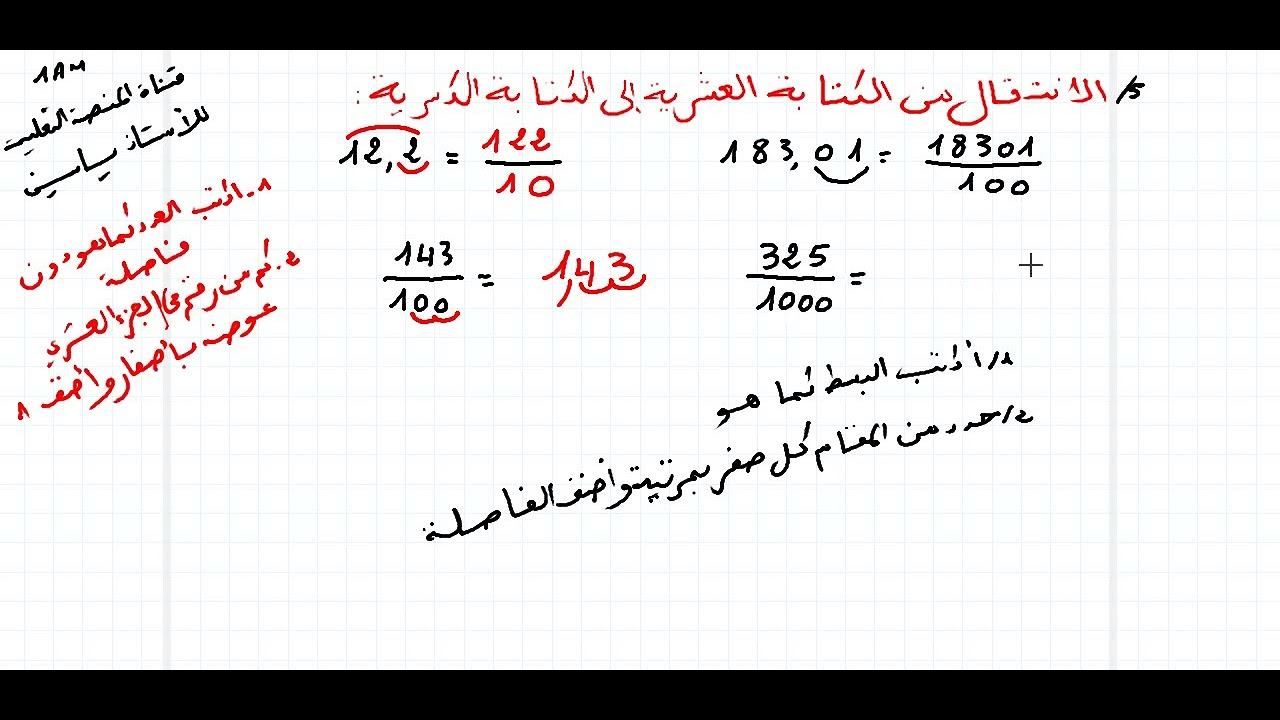 5/ الانتقال من الكتابة العشرية إلى الكتابة الكسرية :
1AM
قناة المنصة التعليمية
للأستاذ ياسين
12,2 = 122/10
183,01 = 18301/100
143/100 = 1,43
325/1000 =
1- اكتب العدد كما هو دون
فاصلة
2. كم من رقم في الجزء العشري
عوضه بأصفار وأضف 1
1/ أكتب البسط كما هو
2/ حدد من المقام كل صفر بمرتبة وأضف الفاصلة